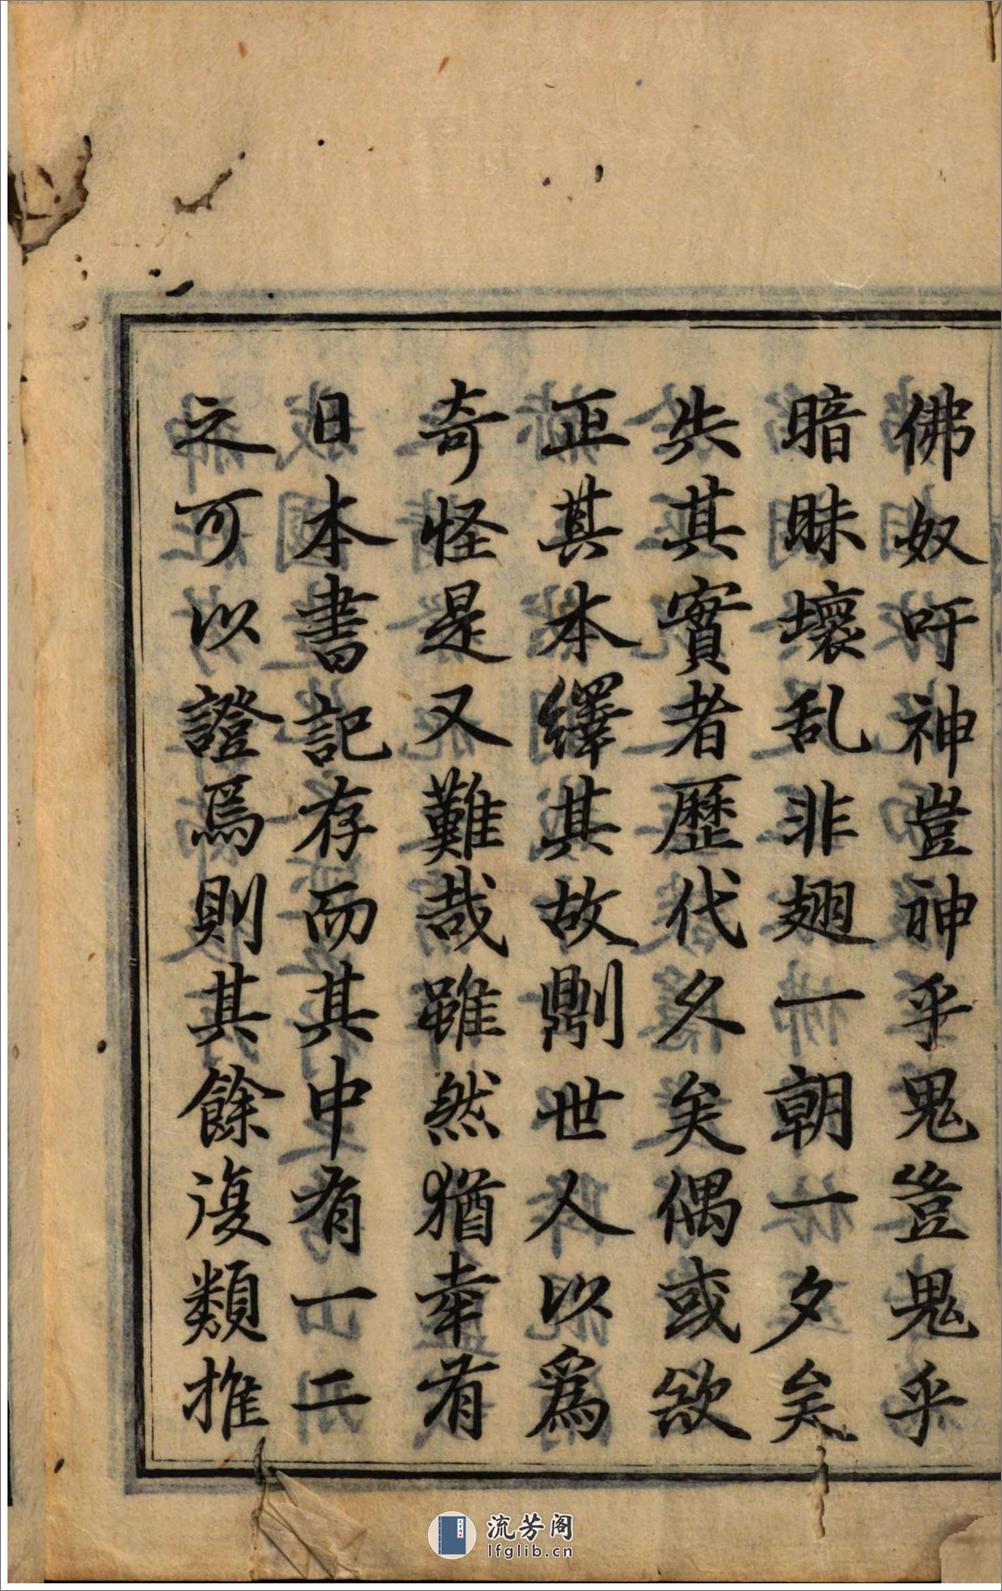 佛奴吁神豈神乎鬼豈鬼乎
暗昧壞乱非翅一朝一夕矣
失其實者歷代久矣偶或欲
正其本繹其故則世人以爲
奇怪是又難哉雖然猶幸有
日本書記存而其中有一二
之可以證焉則其餘復類推
流芳阁
lfglib.cn